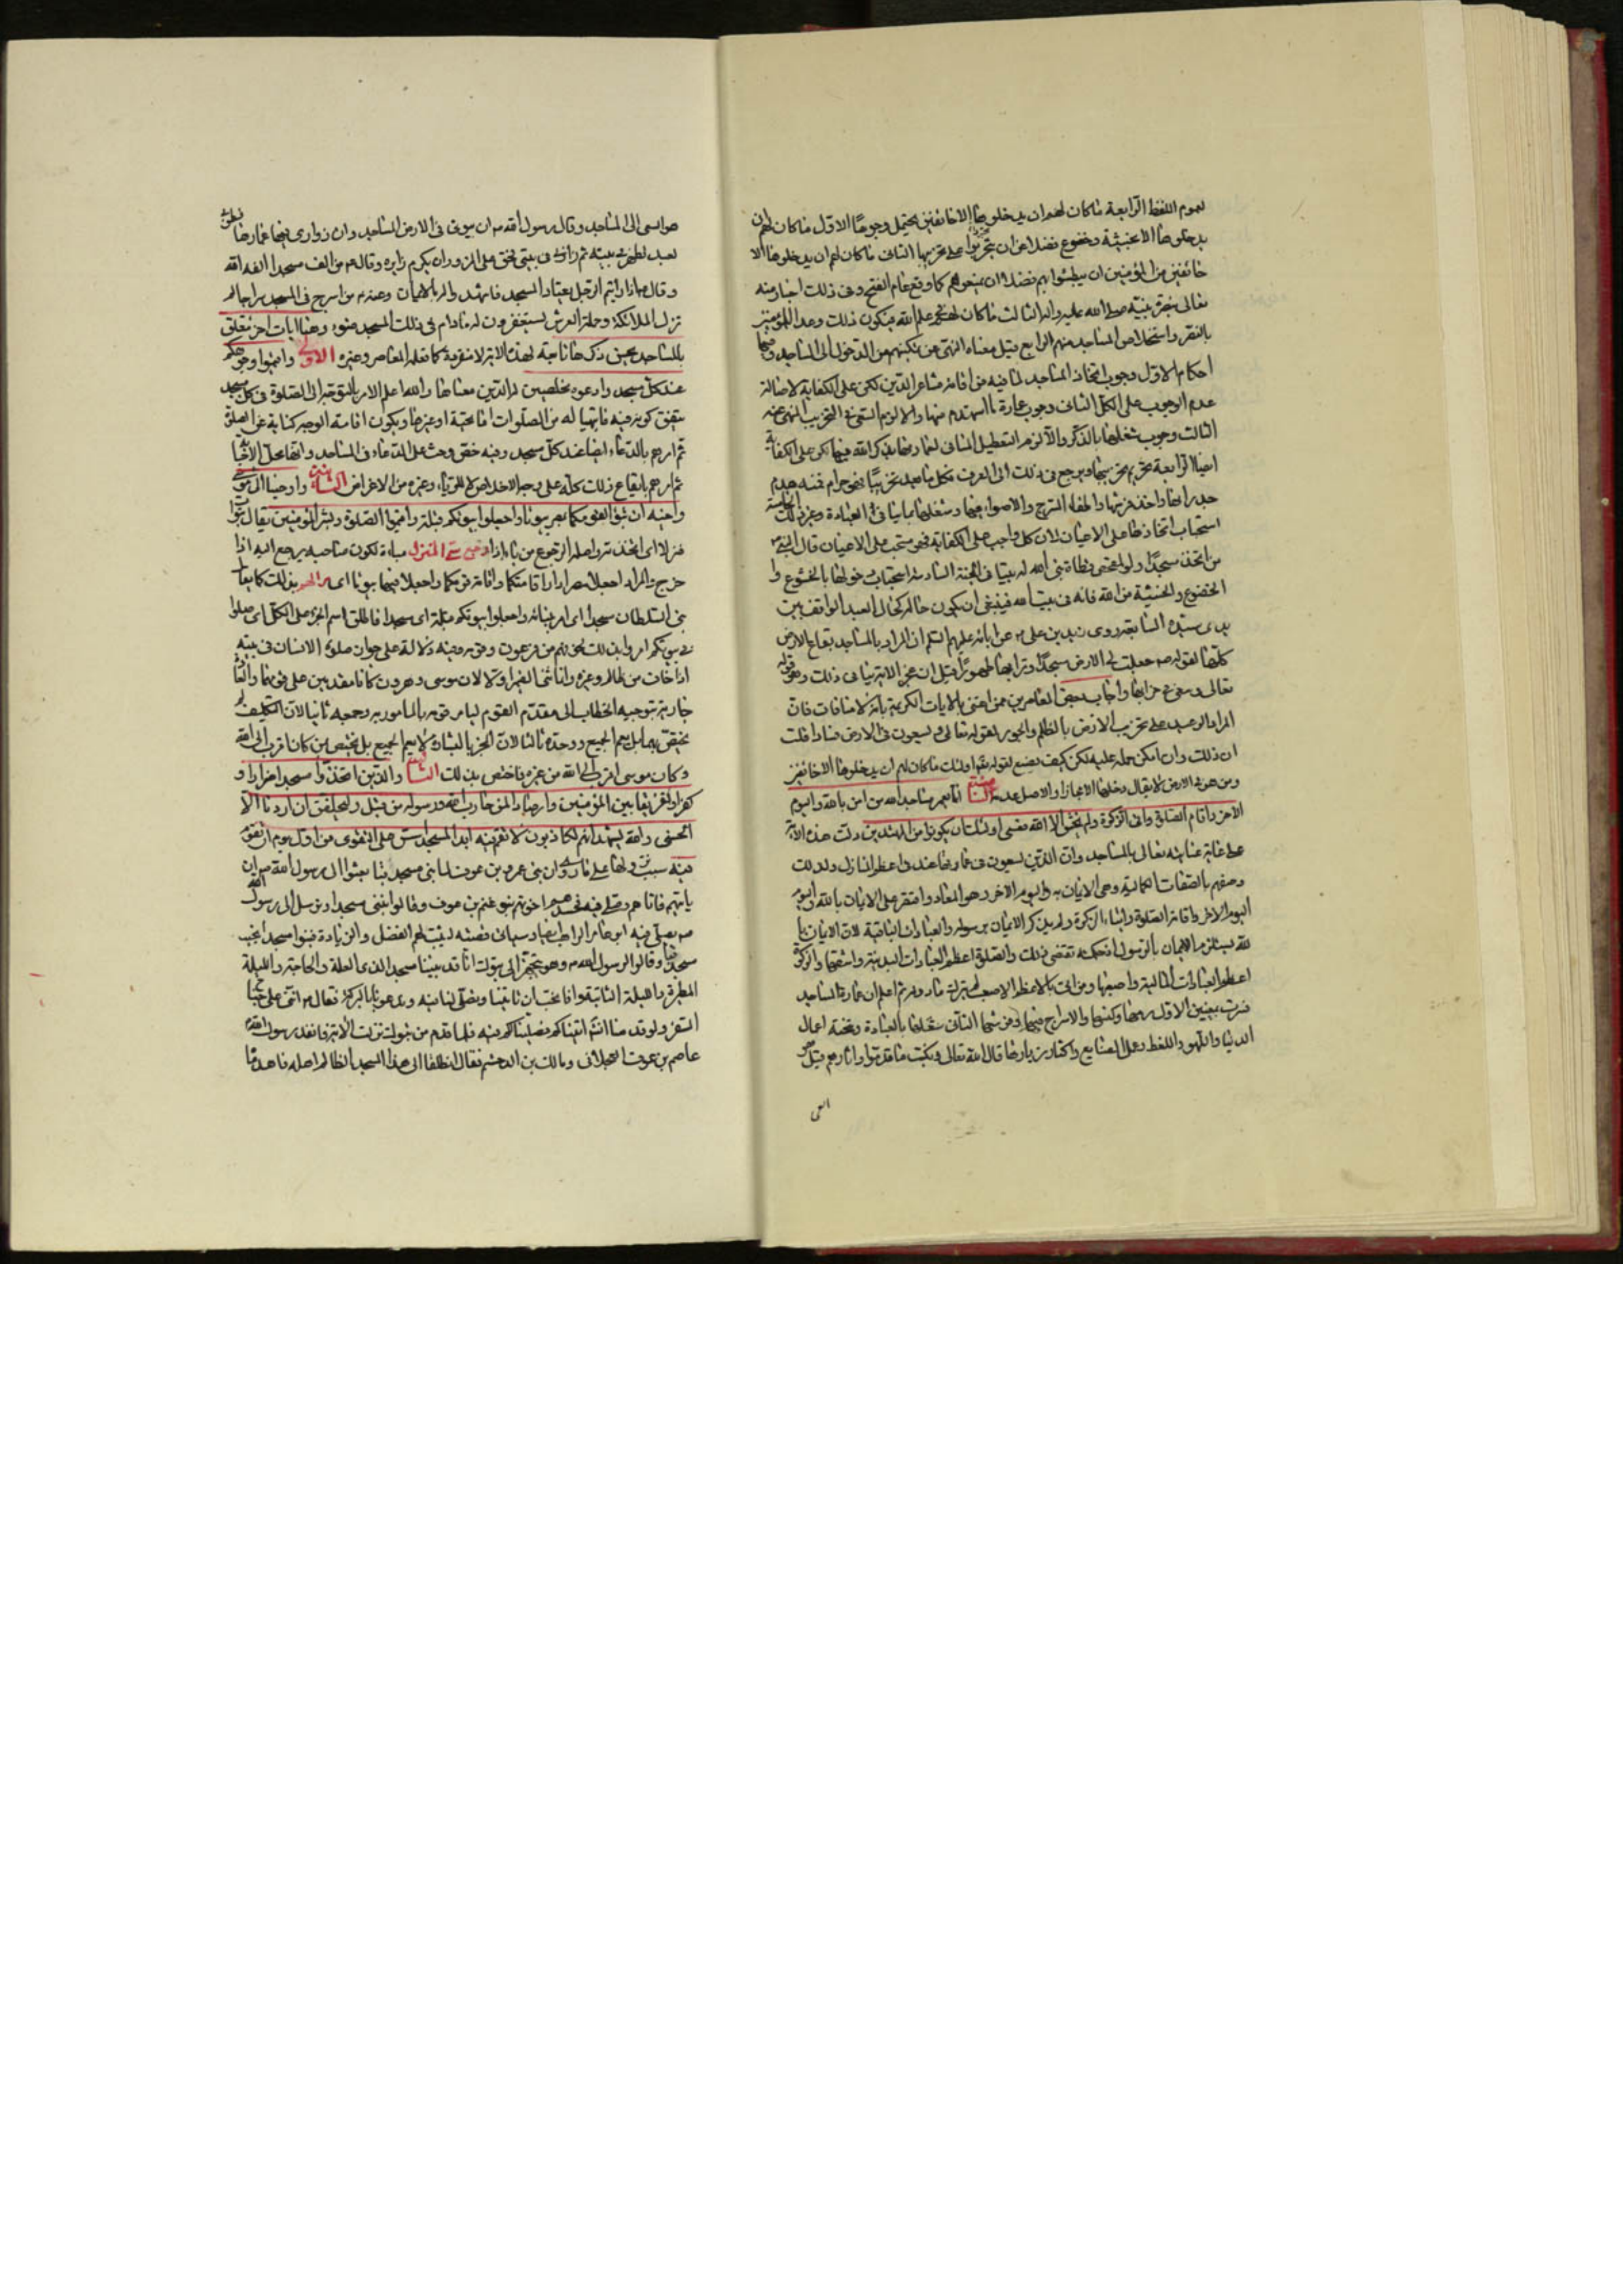 لعموم اللفظ الرابعة ما كان لهم ان يدخلوها الا خائفين يحتمل وجوها الاول ما كان لهم ان
يدخلوها الا بخشية وخضوع فضلا عن ان يجترؤا على تخريبها الثانى ما كان لهم ان يدخلوها الا
خائفين من المؤمنين ان يبطشوا بهم فضلا ان يمنعوهم كما وقع عام الفتح وفى ذلك اخبار منه
تعالى بنصرة نبيه صلى الله عليه واله الثالث ما كان لهم فى علم الله فيكون ذلك وعدا للمؤمنين
بالنصر واستخلاص المساجد منهم الرابع قيل معناه النهى عن تمكينهم من الدخول الى المساجد وفيها
احكام الاول وجوب اتخاذ المساجد لما فيه من اقامة مشاعر الدين لكن على الكفاية لاصالة
عدم الوجوب على الكل الثانى وجوب عمارة ما استهدم منها والا لزم السعى فى التخريب المنهى عنه
الثالث وجوب شغلها بالذكر والا لزم التعطيل المنافى لعمارتها بذكر الله فيها لكن على الكفاية
ايضا الرابعة تحريم تخريبها ويرجع فى ذلك الى العرف فكل ما يعد تخريبا فهو حرام فمنه هدم
جدرانها واخذ فرشها واطفاء السرج والاضواء فيها وشغلها بما ينافى العبادة وغير ذلك الخامسة
استحباب اتخاذها على الاعيان لان كل واجب على الكفاية فهو مستحب على الاعيان قال النبى ص
من اتخذ مسجدا ولو كمفحص قطاة بنى الله له بيتا فى الجنة السادسة استحباب دخولها بالخشوع و
الخضوع والخشية من الله فانه فى بيت الله فينبغى ان يكون حاله كحال العبد الواقف بين
يدى سيده السابعة روى زيد بن على عن ابائه عليهم السلم ان المراد بالمساجد بقاع الارض
كلها لقوله ص جعلت لى الارض مسجدا وترابها طهورا قيل ان عجز الاية ينافى ذلك وهو قوله
تعالى وسعى فى خرابها واجاب بعض المعاصرين ممن اعتنى بالايات الكريمة بانه لا منافات فان
المراد الوعيد على تخريب الارض بالظلم والجور لقوله تعالى ويسعون فى الارض فسادا قلت
ان ذلك وان امكن حمله عليه لكن كيف يصنع بقوله تعالى اولئك ما كان لهم ان يدخلوها الا خائفين
ومن هو فى الارض لا يقال دخلها الا مجازا والاصل عدمه الثامنة انما يعمر مساجد الله من امن بالله واليوم
الاخر واقام الصلوة واتى الزكوة ولم يخش الا الله فعسى اولئك ان يكونوا من المهتدين دلت هذه الاية
على غاية عنايته تعالى بالمساجد وان الذين يسعون فى عمارتها عنده فى اعظم المنازل ولذلك
وصفهم بالصفات الكمالية وهى الايمان به واليوم الاخر وهو المعاد واقتصر على الايمان بالله واليوم
اليوم الاخر واقامة الصلوة وايتاء الزكوة ولم يذكر الايمان برسوله والعبادات الباقية لان الايمان با
لله يستلزم الايمان بالرسول اذ حكمته تقتضى ذلك والصلوة اعظم العبادات البدنية واشقها والزكوة
اعظم العبادات المالية واصعبها ومن اتى بالاعظم الاصعب
ضربت بمعنيين الاول رمها وكنسها والاسراج فيها وفرشها الثانى شغلها بالعبادة وتجنب اعمال
الدنيا واللهو واللغط وعمل الصنايع واكثار زيارتها قال الله تعالى ونكتب ما قدموا واثارهم قيل هو
السعى
هو السعى الى المساجد وقال رسول الله ص ان بيوتى فى الارض المساجد وان زوارى فيها عمارها فطوبى
لعبد تطهر فى بيته ثم زارنى فى بيتى فحق على المزور ان يكرم زايره وقال ص من الف مسجدا الفه الله
وقال ص اذا رايتم الرجل يعتاد المسجد فاشهدوا له بالايمان وعنه ص من اسرج فى المسجد سراجا لم
تزل الملائكة وحملة العرش يستغفرون له مادام فى ذلك المسجد ضوء وهنا ايات اخر يتعلق
بالمساجد يحسن ذكرها تابعة لهذه الاية لا منفردة كما فعله المعاصر وغيره الاولى واقيموا وجوهكم
عند كل مسجد وادعوه مخلصين له الدين معناها والله اعلم الامر بالتوجه الى الصلوة فى كل مسجد
يتفق كونه فيه فانها له من الصلوات اما تحية او غيرها ويكون اقامة الوجه كناية عن الصلوة
ثم امرهم بالدعاء ايضا عند كل مسجد وفيه حض وحث على الدعاء فى المساجد وانها محل الاجابة
ثم امرهم بايقاع ذلك كله على وجه الاخلاص لا للرياء وغيره من الاغراض الثانية واوحينا الى موسى
واخيه ان تبوءا لقومكما بمصر بيوتا واجعلوا بيوتكم قبلة واقيموا الصلوة وبشر المؤمنين يقال تبوأ
منزلا اى اتخذه واصله الرجوع من باء اذا رجع سمى المنزل مباءة لكون صاحبه يرجع اليه اذا
خرج والمراد اجعلا مصر دار اقامتكما واقامة قومكما واجعلا فيها بيوتا اى مرالهم بذلك كما يقال
بنى السلطان مسجدا اى امر ببنائه واجعلوا بيوتكم قبلة اى مسجدا فاطلق اسم الجزء على الكل اى صلوا
فى بيوتكم امروا بذلك لخوفهم من فرعون وقومه وفيه دلالة على جواز صلوة الانسان فى بيته
اذا خاف من ظالم وغيره وانما ثنى الضمير اولا لان موسى وهرون كانا مقدمين على قومهما والغالب
جارية بتوجيه الخطاب الى مقدم القوم ليامر قومه بالمامور به وجمعه ثانيا لان التكليف لم
يختص بهما بل يعم الجميع ووحده ثالثا لان الخبر بالبشارة لا يعم الجميع بل يختص بمن كان اقرب الى الله
وكان موسى اقرب الى الله من غيره فاختص بذلك الثالثة والذين اتخذوا مسجدا ضرارا و
كفرا وتفريقا بين المؤمنين وارصادا لمن حارب الله ورسوله من قبل وليحلفن ان اردنا الا
الحسنى والله يشهد انهم لكاذبون لا تقم فيه ابدا لمسجد اسس على التقوى من اول يوم احق ان تقوم
فيه سبب نزولها على ما روى ان بنى عمرو بن عوف لما بنى مسجد قبا بعثوا الى رسول الله ص ان
ياتيهم فاتاهم وصلى فيه فحسدهم اخوتهم بنو غنم بن عوف وقالوا نبنى مسجدا ونرسل الى رسول الله
ص يصلى فيه ابو عامر الراهب ليثبت لهم الفضل والزيادة فبنوا مسجدا بجنب
مسجد قبا وقالوا لرسول الله ص وهو يتجهز الى تبوك انا قد بنينا مسجدا لذى العلة والحاجة والليلة
المطيرة والليلة الشاتية وانا نحب ان تاتينا وتصلى لنا فيه وتدعو لنا بالبركة فقال ص انى على جناح
السفر ولو قدمنا انشاء الله اتيناكم فصلينا لكم فيه فلما قدم من تبوك نزلت الاية فانفذ رسول الله ص
عاصم بن عوف العجلانى ومالك بن الدخشم فقال انطلقا الى هذا المسجد الظالم اهله فاهدماه